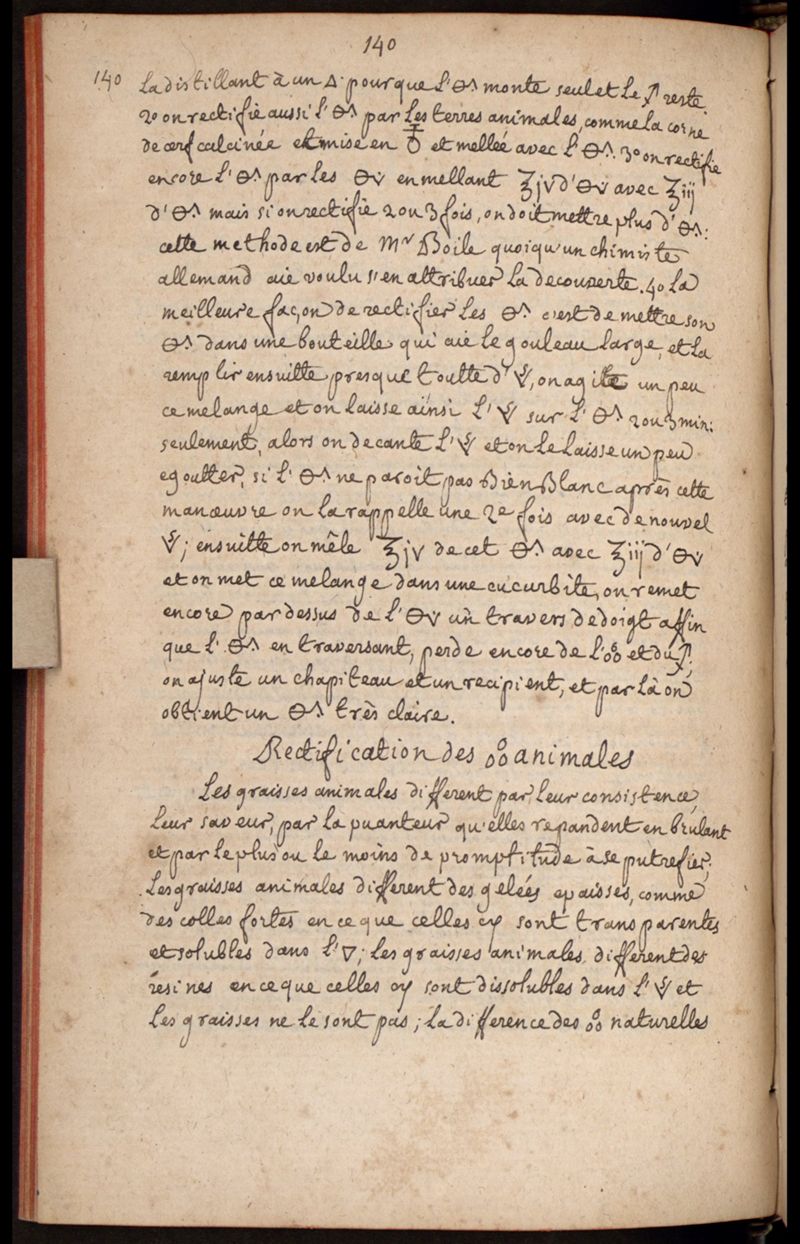 140
140 La distillant à un 🜂. pour que l'🜔^ monte seul et le 🜍 reste
2° on rectifie aussi l'🜔^ par les terres animales, comme la corne
de cerf calcinée et mise en 🜿 et mellée avec l'🜔^. 3° on rectifie
encore l'🜔^ par les 🜔v en mellant ʒjv d'🜔v avec ʒiij
d'🜔^ mais si on rectifie 2 ou 3 fois, on doit mettre plus d'🜔^:
cette methode est de Mr Boile quoiqu'un chimiste
allemand aie voulu s'en attribuer la decouverte. 4° La
meilleure façon de rectifier les 🜔^ c'est de mettre son
🜔^ dans une bouteille qui aie le gouleau large, et la
remplir ensuitte presque toutte d'🜈, on agite un peu
ce melange et on laisse ainsi l'🜈 sur l'🜔^ 2 ou 3 min:
seulement, alors on decante l'🜈 et on le laisse un peu
egoutter, si l'🜔^ ne paroit pas Bien Blanc après cette
manœuvre on la rappelle une 2e fois avec de nouvel
🜈; ensuitte on mêle ʒjv de cet 🜔^ avec ʒiij d'🜔v
et on met ce melange dans une cucurbite, on remet
encore par dessus de l'🜔v un travers de doigt affin
que l'🜔^ en traversant, perde encore de l'o%o et du 🜍.
on ajuste un chapiteau et un recipient, et par là on
obtient un 🜔^ très claire.
Rectification des o%o animales
Les graisses animales different par leur consistence,
leur saveur, par la puanteur qu'elles repandent en brulant
et par le plus ou le moins de promptitude à se putrefier.
Les graisses animales different des gelées epaisses, comme
des colles fortes en ce que celles cy sont transparentes
et solubles dans l'🜄; les graisses animales different des
résines en ce que celles cy sont dissolubles dans l'🜈 et
les graisses ne le sont pas; la difference des o%o naturelles